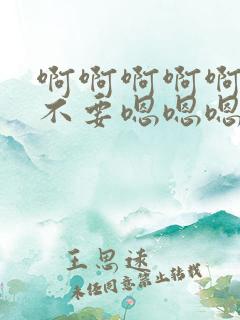 啊啊啊啊啊
不要嗯嗯嗯
王思远
未经同意禁止转载